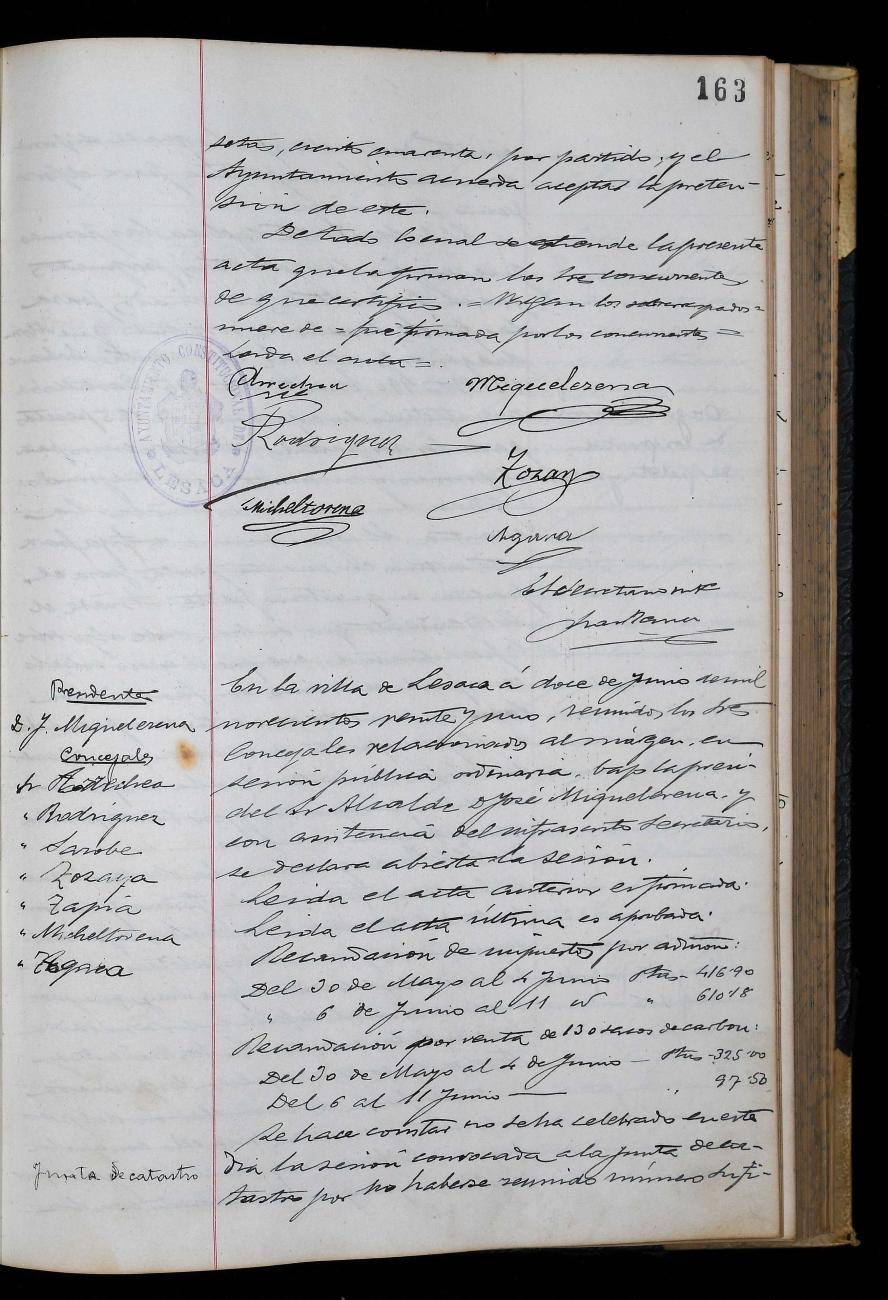 163
setas, ciento cuarenta, por partido; y el
Ayuntamiento acuerda aceptar la preten-
sión de este.
De todo lo cual se extiende la presente
acta que la firman los sres concurrentes,
de que certifico. = Valgan los
= firmada por los concurrentes =
el acta =.
AYUNTAMIENTO CONSTITUCIONAL DE
LESACA
Arrechea
Miguelerena
Rodriguez
Zozaya
Micheltorena
Agara
El Secretario int
Presidente
D. J. Miguelerena
Concejales
Sr Arrechea
" Rodriguez
" Sarobe
" Zozaya
" Tapia
" Micheltorena
En la villa de Lesaca á doce de Junio de mil
novecientos veinte y uno, reunidos los Sres
Concejales relacionados al márgen, en
sesión pública ordinaria, bajo la presi-
del Sr Alcalde D José Miguelerena, y
con asistencia del infrascrito Secretario,
se declara abierta la sesión.
Leida el acta anterior es firmada.
Leida el acta última es aprobada.
Recaudación de impuestos por admon:
Del 30 de Mayo al 4 Junio Ptas - 416-90
" 6 de Junio al 11 id " 610-18
Recaudación por venta de 130 sacos de carbon:
Del 30 de Mayo al 4 de Junio — Ptas - 325-00
Del 6 al 11 Junio — " 97-50
Se hace constar no se ha celebrado en este
Junta de catastro
dia la sesión convocada a la junta de ca-
tastro por no haberse reunido número sufi-